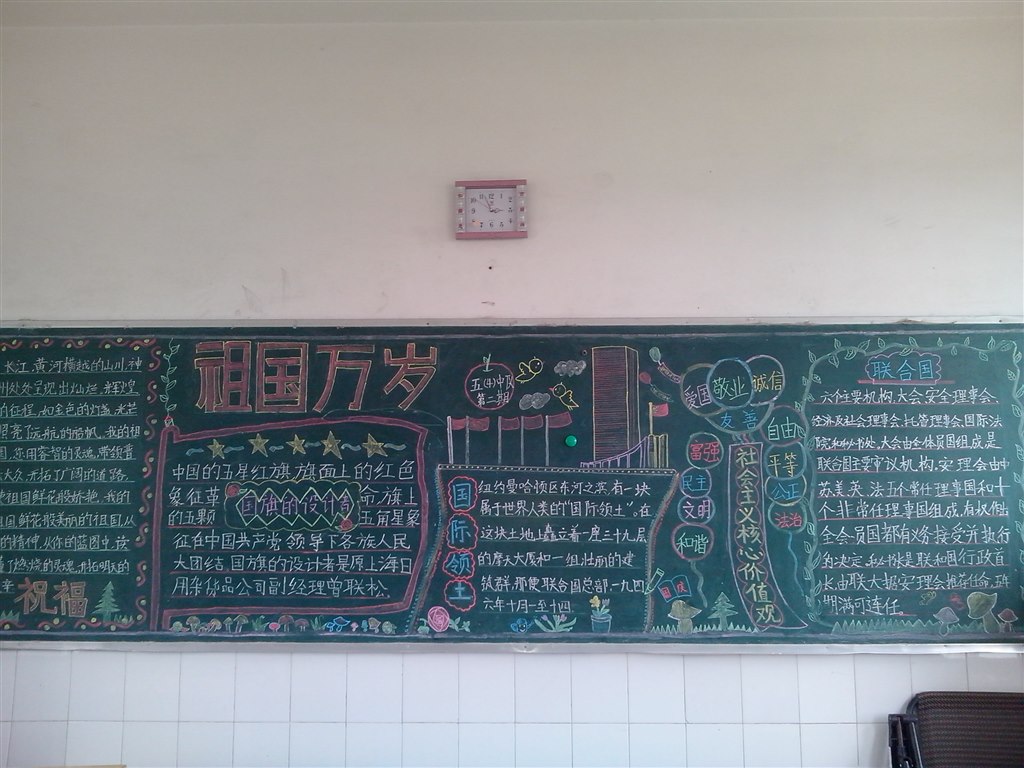 长江、黄河横越的山川,神
州处处呈现出灿烂、辉煌
的征程,如金色的灯盏,光芒
照亮了远航的船帆,我的祖
国,您用睿智的灵魂,带领着
大众,开拓广阔的道路。
祖国鲜花般娇艳,我的
国,鲜花般美丽的祖国,从
的精神,从你的蓝图中,读
祝福
祖国万岁
中国的五星红旗,旗面上的红色
象征革
命,旗上
国旗的设计者
的五颗
五角星象
征在中国共产党领导下各族人民
大团结,国旗的设计者是原上海日
用杂货品公司副经理曾联松。
五(4)中队
第二期
国际领土
纽约曼哈顿区东河之滨,有一块
属于世界人类的"国际领土"。在
这块土地上矗立着一座三十九层
的摩天大厦和一组壮丽的建
筑群,那便联合国总部,一九四
六年十月一至十四
爱国
敬业
诚信
友善
自由
平等
公正
法治
富强
民主
文明
和谐
社会主义核心价值观
国庆
联合国
六个主要机构,大会,安全理事会、
经济及社会理事会、托管理事会、国际法
院和秘书处,大会由全体员国组成,是
联合国主要审议机构,安理会由
苏、美、英、法五个常任理事国和十
个非常任理事国组成,有权作
全会员国都有义务接受并执行
的决定,秘书长是联和国行政首
长,由联大据安理会推荐任命,五年
期满可连任。